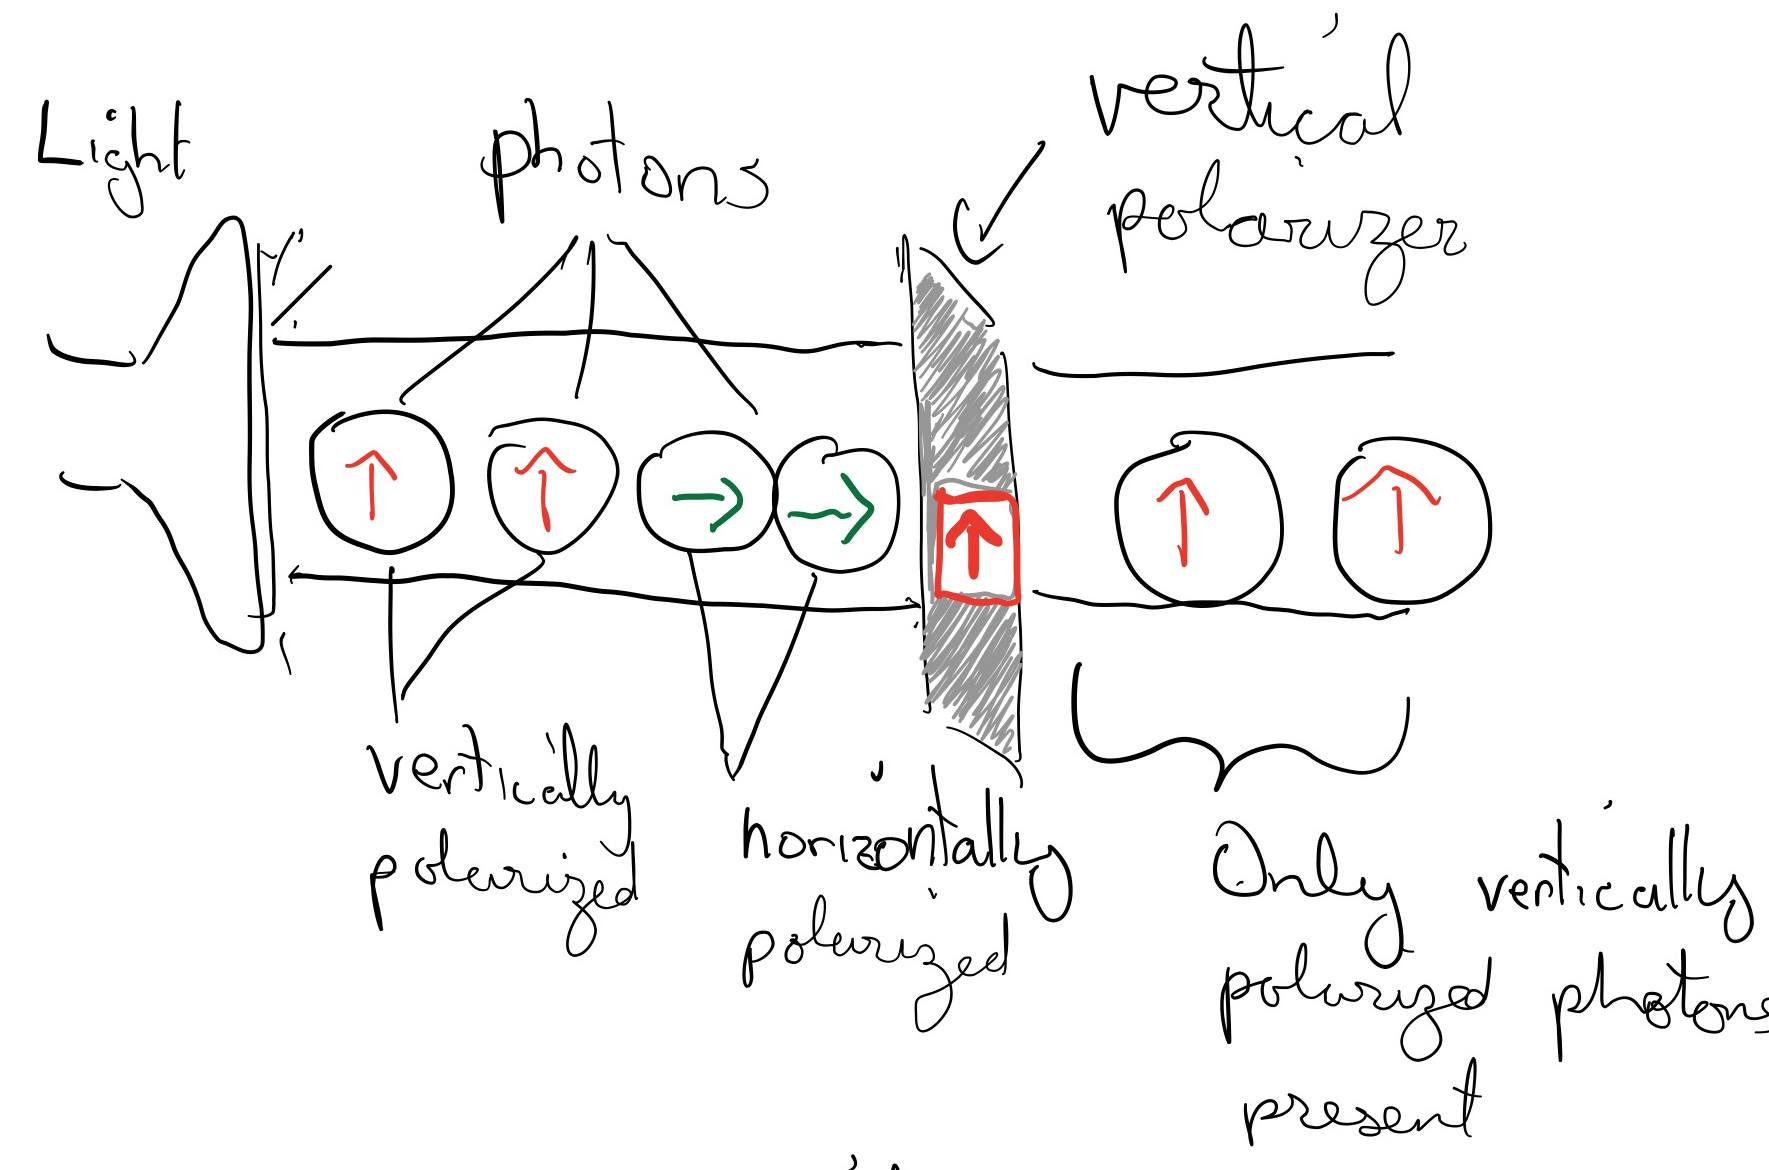 Light
photons
vertical
polarizer
vertically
polarized
horizontally
polarized
Only vertically
polarized photons
present